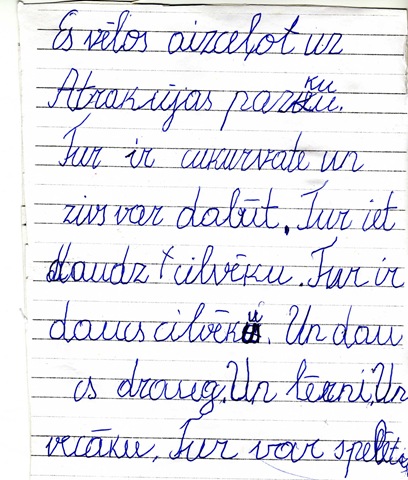 Es vēlos aizceļot uz
Atrakcijas parku.
Tur ir cukurvate un
zivs var dabūt. Tur iet
daudz cilvēku. Tur ir
daucs cilvēku. Un dau
cs draug. Un bērni. Un
vecāku. Tur var spēlēt